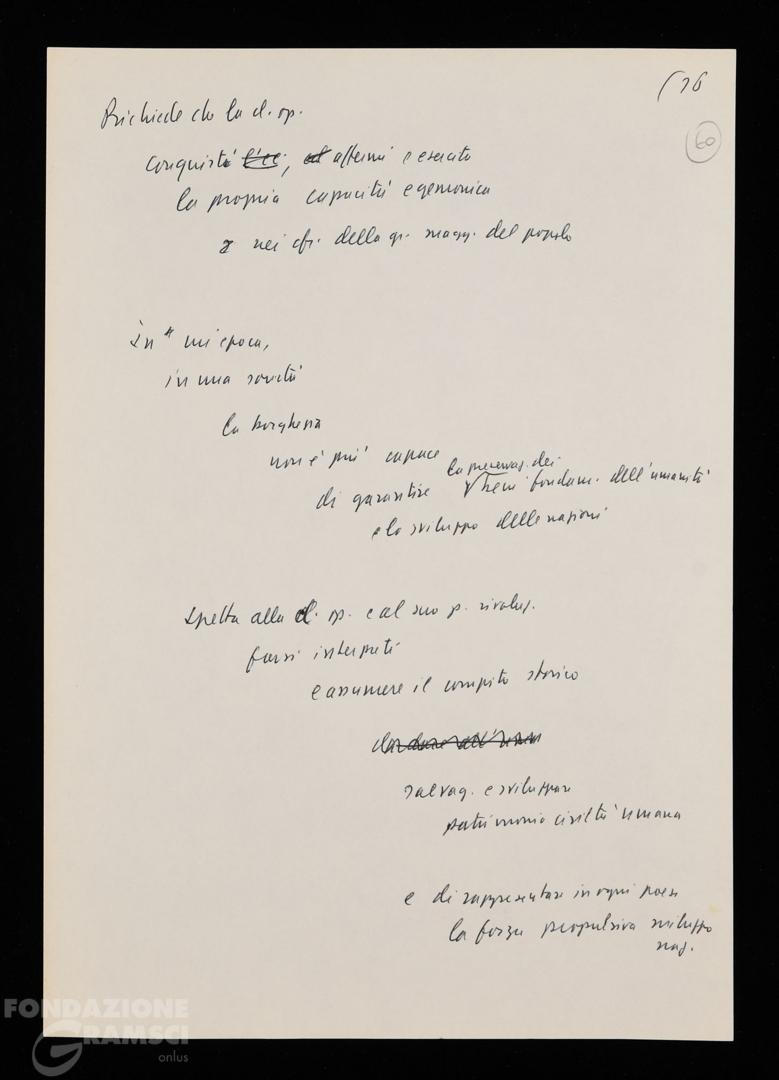 (36
60
Richiede che la cl. op.
conquisti l'ec, affermi e eserciti
la propria capacità egemonica
nei cfr. della gr. magg. del popolo
In un'epoca,
in una società
la borghesia
non è più capace
la preservaz. dei
di garantire beni fondam. dell'umanità
e lo sviluppo delle nazioni
Spetta alla cl. op. e al suo p. rivoluz.
farsi interpreti
e assumere il compito storico
salvag. e sviluppare
patrimonio civiltà umana
e di rappresentare in ogni paese
la forza propulsiva sviluppo
naz.
FONDAZIONE
GRAMSCI
onlus